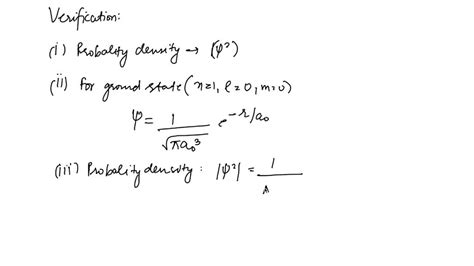 Verification:
(i) Probality density → (ψ²)
(ii) for ground state (n=1, ℓ=0, m=0)
ψ = 1/√πa₀³ e^-r/a₀
(iii) Probality density: |ψ²| = 1/